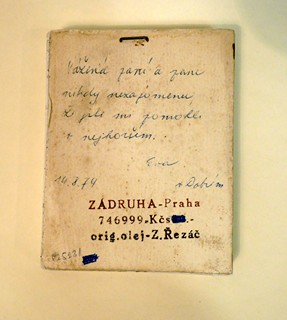 Vážená paní a pane
nikdy nezapomenu,
že jste mi pomohli
v nejhorším.
Eva
14.8.79
v Dobrém
ZÁDRUHA-Praha
746999-Kčs .-
orig.olej-Z.Řezáč